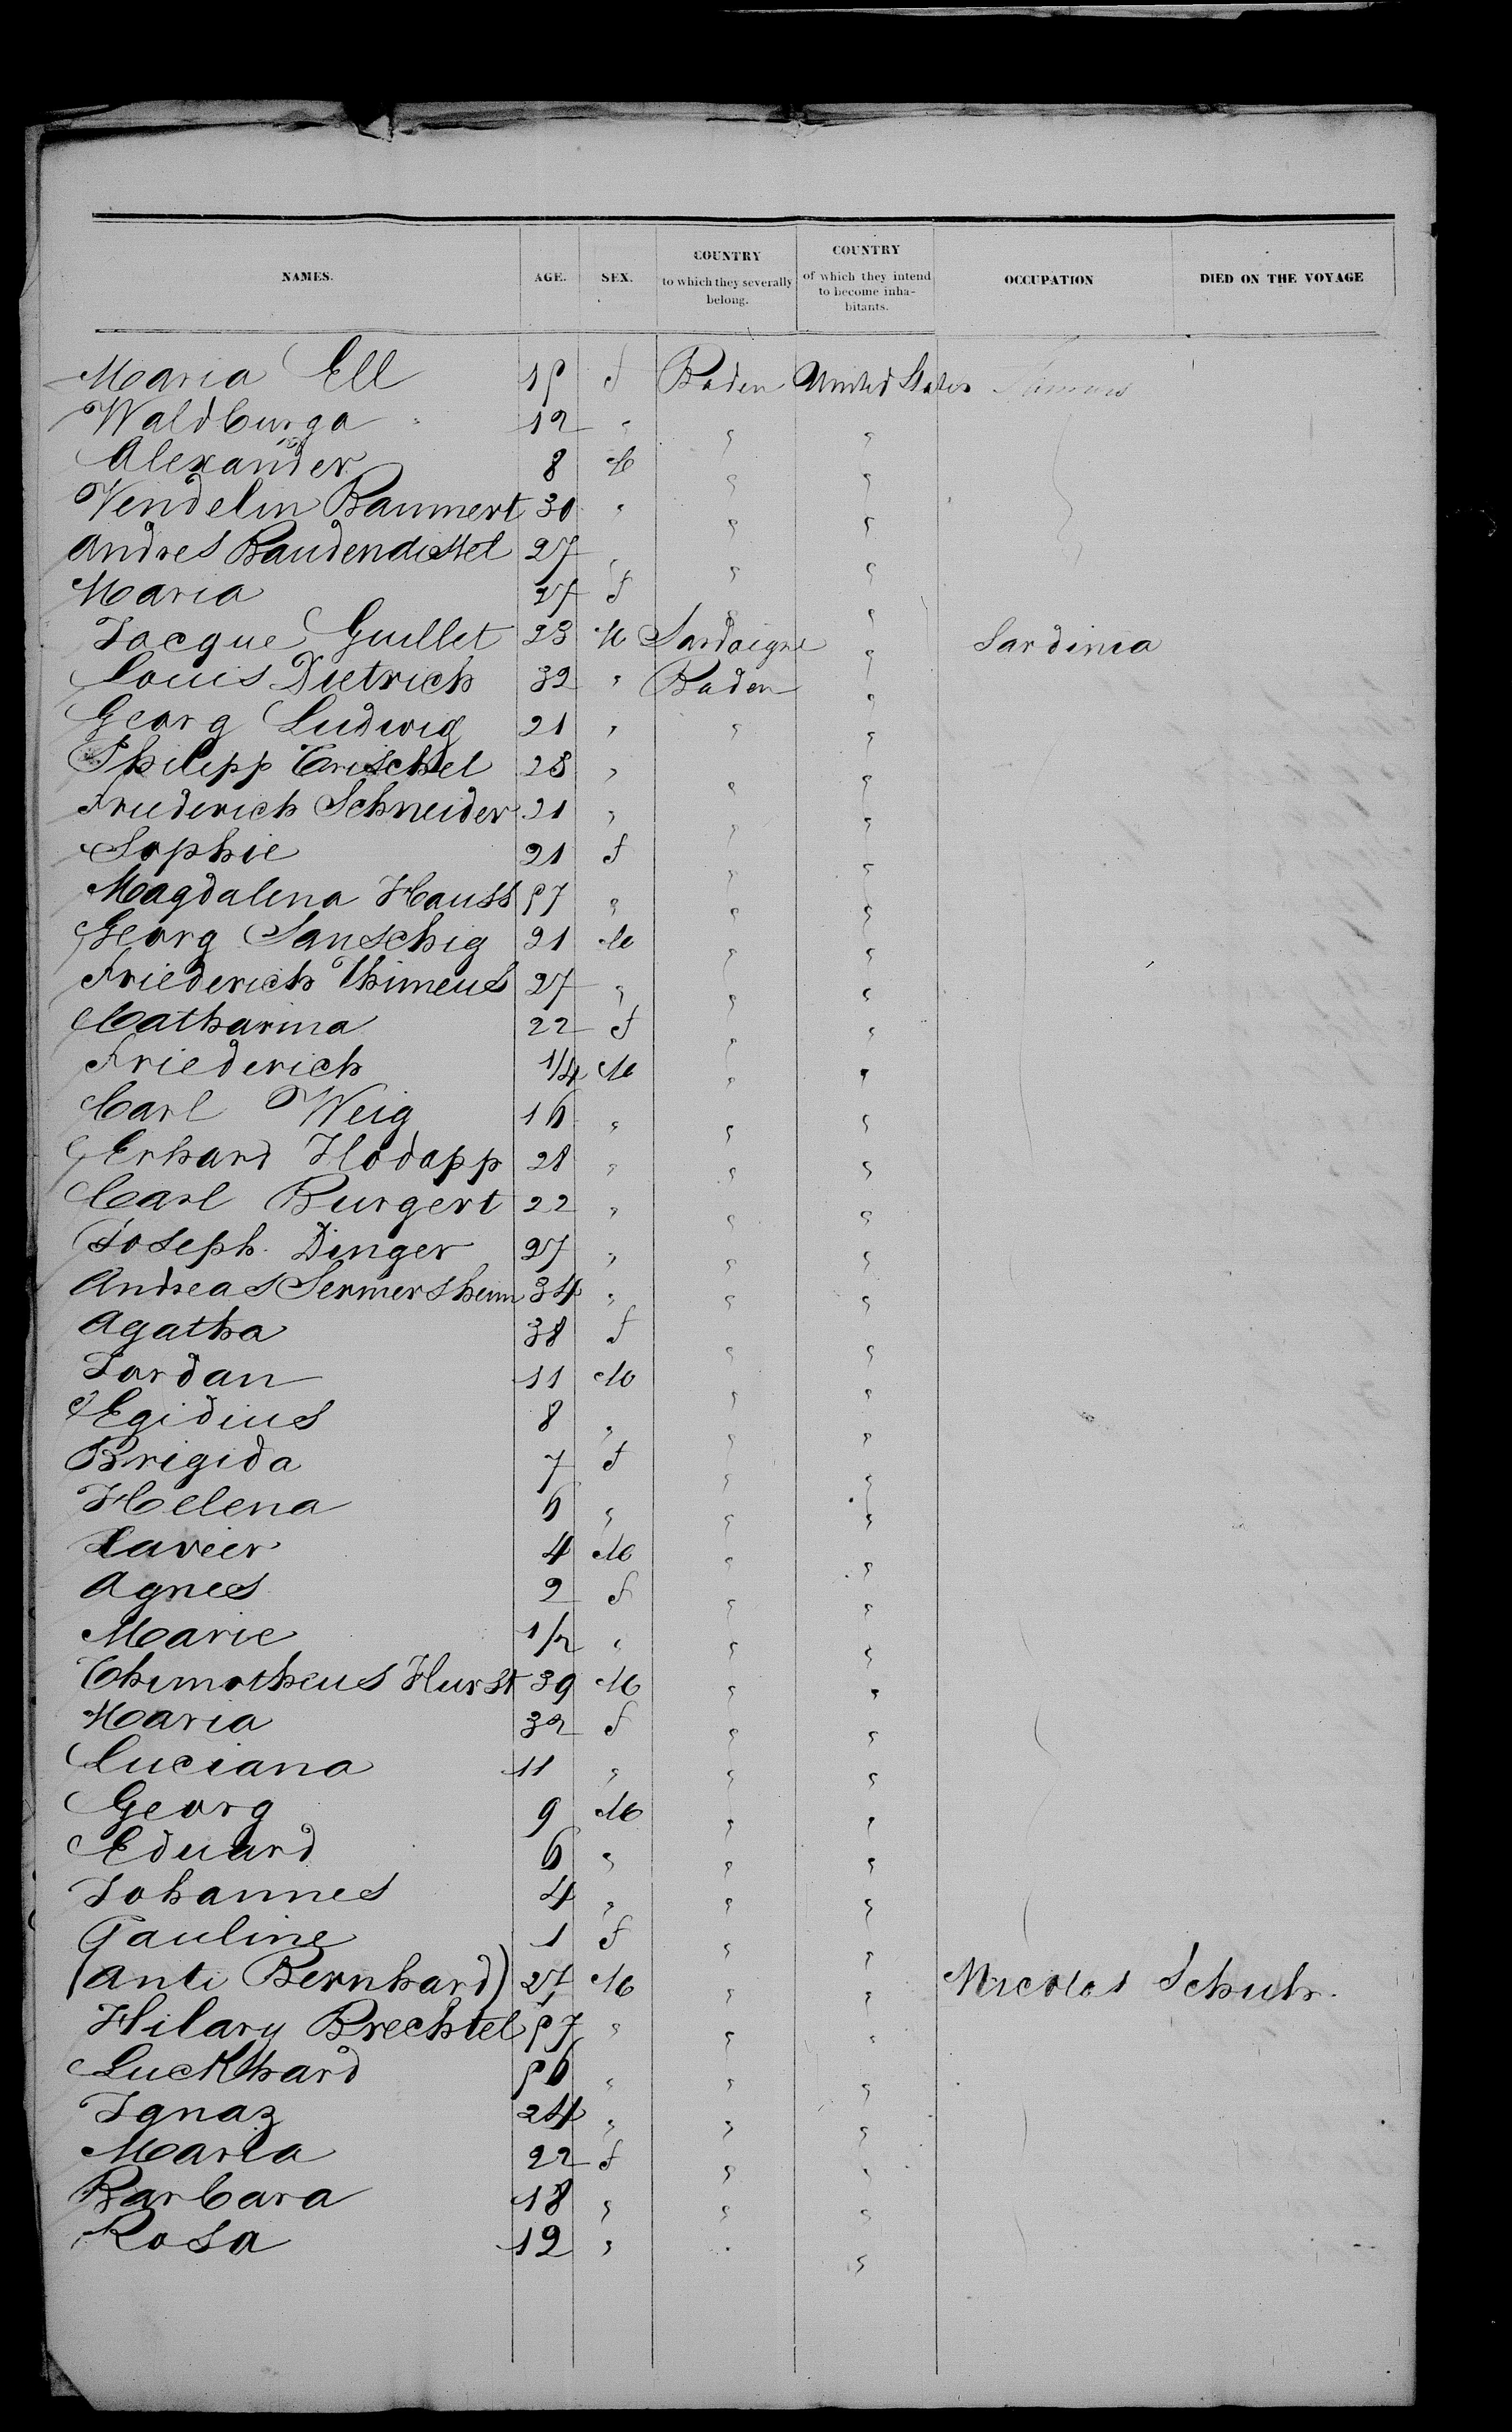 NAMES. AGE. SEX. COUNTRY to which they severally belong. COUNTRY of which they intend to become inhabitants. OCCUPATION DIED ON THE VOYAGE
Maria Ell 15 f Baden United States
Waldburga " 12 " " "
Alexander 8 M " "
Vendelin Baumert 30 " " "
Andres Baudendistel 27 " " "
Maria 27 f " "
Jacque Guillet 23 M Sardaigne " Sardinia
Louis Dietrich 32 " Baden "
Georg Ludwig 21 " " "
Philipp Crischel 28 " " "
Friederich Schneider 21 " " "
Sophie 21 f " "
Magdalena Hauss 57 " " "
Georg Sanschig 21 M " "
Friederich Thimeus 27 " " "
Catharina 22 f " "
Friederich 1/4 M " "
Carl Weig 16 " " "
Erhard Hodapp 28 " " "
Carl Burgert 22 " " "
Joseph Dinger 27 " " "
Andreas Sermersheim 34 " " "
Agatha 38 f " "
Jordan 11 M " "
Egidius 8 " " "
Brigida 7 f " "
Helena 6 " " "
Xavier 4 M " "
Agnes 2 f " "
Marie 1/2 " " "
Thimotheus Hurst 39 M " "
Maria 32 f " "
Luciana 11 " " "
Georg 9 M " "
Eduard 6 " " "
Johannes 4 " " "
Pauline 1 f " "
(Anti Bernhard) 27 M " " Nicolas Schuh.
Hilary Brechtel 57 " " "
Luckhard 56 " " "
Ignaz 24 " " "
Maria 22 f " "
Barbara 18 " " "
Rosa 12 " " "